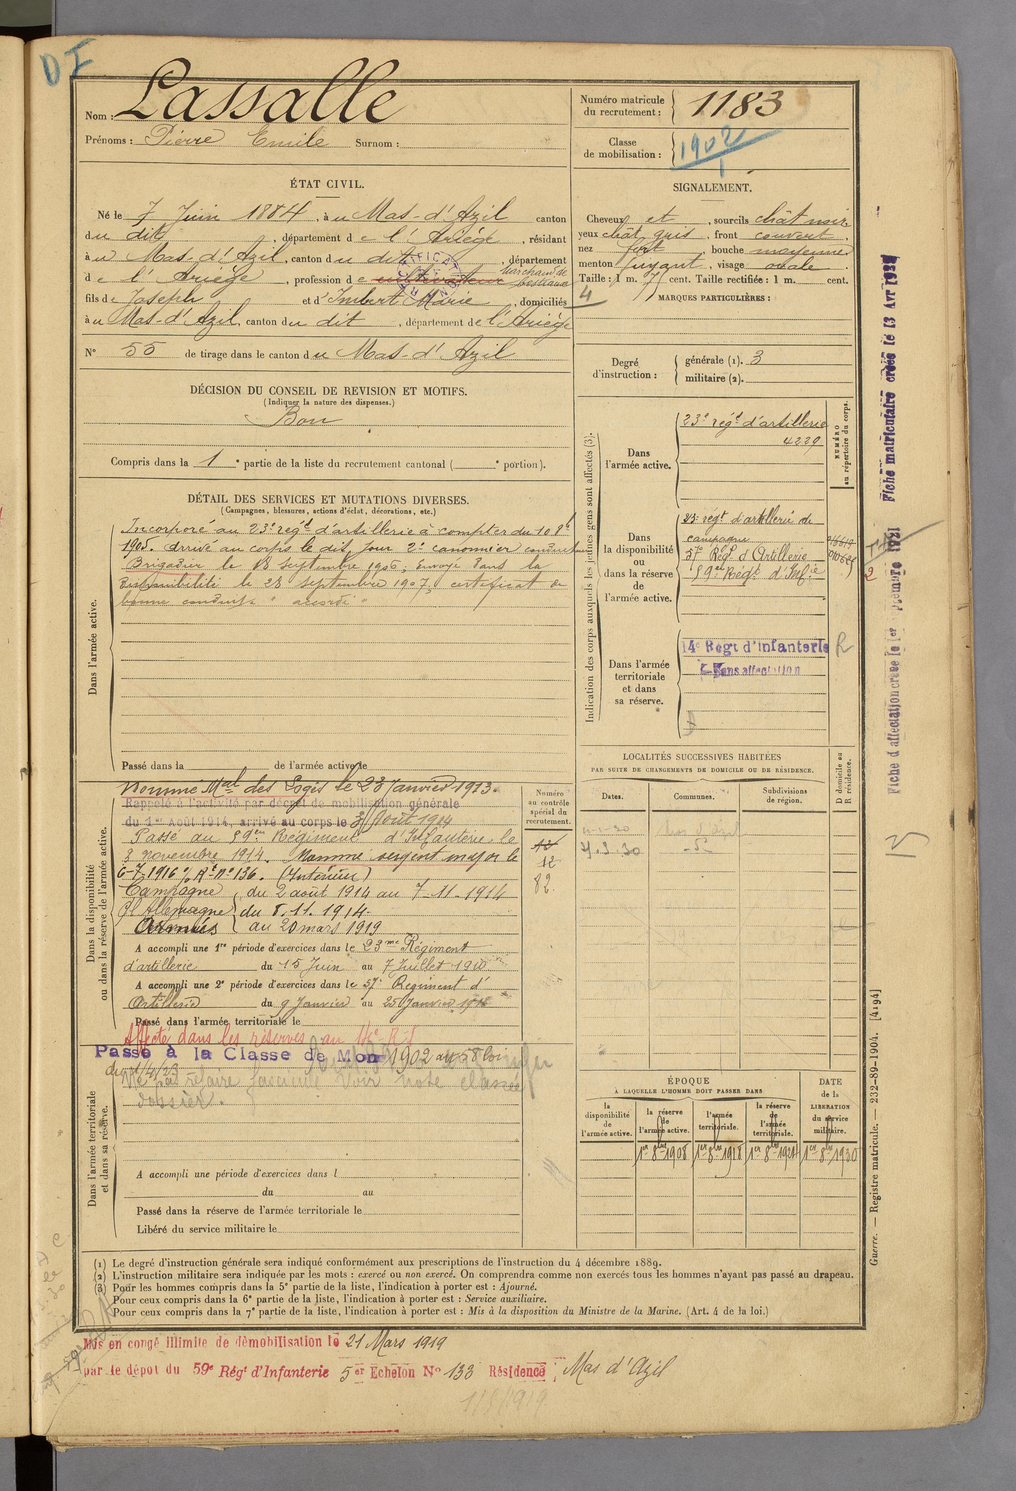 DI
Nom : Lassalle
Prénoms : Pierre Emile Surnom :
Numéro matricule du recrutement : 1183
Classe de mobilisation : 1902
ÉTAT CIVIL.
Né le 7 Juin 1884, à u Mas-d'Azil canton
d u dit, département d e l'Ariége, résidant
à u Mas-d'Azil, canton d u dit, département
d e l'Ariége, profession d e cultivateur marchand de bestiaux
fils d e Joseph et d' Imbert Marie, domiciliés
à u Mas-d'Azil, canton d u dit, département de l'Ariége
N° 55 de tirage dans le canton d u Mas-d'Azil
SIGNALEMENT.
Cheveux et, sourcils chât noir
yeux chât gris, front couvert
nez fort, bouche moyenne
menton fuyant, visage ovale
Taille : 1 m. 7 cent. Taille rectifiée : 1 m. cent.
4 MARQUES PARTICULIÈRES :
Degré d'instruction : générale (1). 3
militaire (2).
DÉCISION DU CONSEIL DE REVISION ET MOTIFS.
(Indiquer la nature des dispenses.)
Bon
Compris dans la 1e partie de la liste du recrutement cantonal ( e portion).
DÉTAIL DES SERVICES ET MUTATIONS DIVERSES.
(Campagnes, blessures, actions d'éclat, décorations, etc.)
Dans l'armée active.
Incorporé au 23e régt d'artillerie à compter du 10 8bre
1905. Arrivé au corps le dit jour 2e canonnier conducteur
Brigadier le 13 septembre 1906, Envoyé dans la
disponibilité le 23 septembre 1907, certificat de
bonne conduite "accordé"
Passé dans la de l'armée active le
Indication des corps auxquels les jeunes gens sont affectés (3).
NUMÉRO au répertoire du corps.
Dans l'armée active.
23e régt d'artillerie
4229
Dans la disponibilité ou dans la réserve de l'armée active.
23e régt d'artillerie de
campagne
57e Rég. d'Artillerie
59e Régt d'Infie
Dans l'armée territoriale et dans sa réserve.
14e Régt d'infanterie R
Sans affectation
Dans la disponibilité ou dans la réserve de l'armée active.
Nommé Mal des Logis le 23 Janvier 1913.
Rappelé à l'activité par décret de mobilisation générale
du 1er Août 1914, arrivé au corps le 3 Août 1914
Passé au 59eme Régiment d'Infanterie le
8 novembre 1914. Nommé sergent major le
6-7-1916 Rt n° 136. (Intérieur)
Campagne du 2 août 1914 au 7-11-1914
Ct Allemagne du 8.11.1914
Armées au 20 mars 1919
A accompli une 1re période d'exercices dans le 23me Régiment
d'artillerie du 15 Juin au 7 Juillet 1910
A accompli une 2e période d'exercices dans le 57e Régiment d'
Artillerie du 9 Janvier au 25 Janvier
Passé dans l'armée territoriale le
Affecté dans les réserves au 14e R.I
Numéro au contrôle spécial du recrutement.
12
12
82
LOCALITÉS SUCCESSIVES HABITÉES
PAR SUITE DE CHANGEMENTS DE DOMICILE OU DE RÉSIDENCE.
Dates. Communes. Subdivisions de région.
D domicile ou R résidence.
7.3.30
Dans l'armée territoriale et dans sa réserve.
Passé à la Classe de Mon 1902 art 58 loi
du 1/4/23
Ne pas refaire fascicule Voir note classée
dossier.
A accompli une période d'exercices dans l
du au
Passé dans la réserve de l'armée territoriale le
Libéré du service militaire le
ÉPOQUE
À LAQUELLE L'HOMME DOIT PASSER DANS
DATE de la LIBERATION du service militaire.
la disponibilité de l'armée active.
la réserve de l'armée active.
l'armée territoriale.
la réserve de l'armée territoriale.
1er 8bre 1908 1er 8bre 1918 1er 8bre 1924 1er 8bre 1930
(1) Le degré d'instruction générale sera indiqué conformément aux prescriptions de l'instruction du 4 décembre 1889.
(2) L'instruction militaire sera indiquée par les mots : exercé ou non exercé. On comprendra comme non exercés tous les hommes n'ayant pas passé au drapeau.
(3) Pour les hommes compris dans la 5e partie de la liste, l'indication à porter est : Ajourné.
Pour ceux compris dans la 6e partie de la liste, l'indication à porter est : Service auxiliaire.
Pour ceux compris dans la 7e partie de la liste, l'indication à porter est : Mis à la disposition du Ministre de la Marine. (Art. 4 de la loi.)
Mis en congé illimité de démobilisation le 21 Mars 1919
par le dépot du 59e Régt d'Infanterie 5er Echelon N° 133 Résidence : Mas d'Azil
Guerre. — Registre matricule. — 232-89-1904. [4194]
Fiche matriculaire créée le 13 Avr
Fiche d'affectation créée le 1er